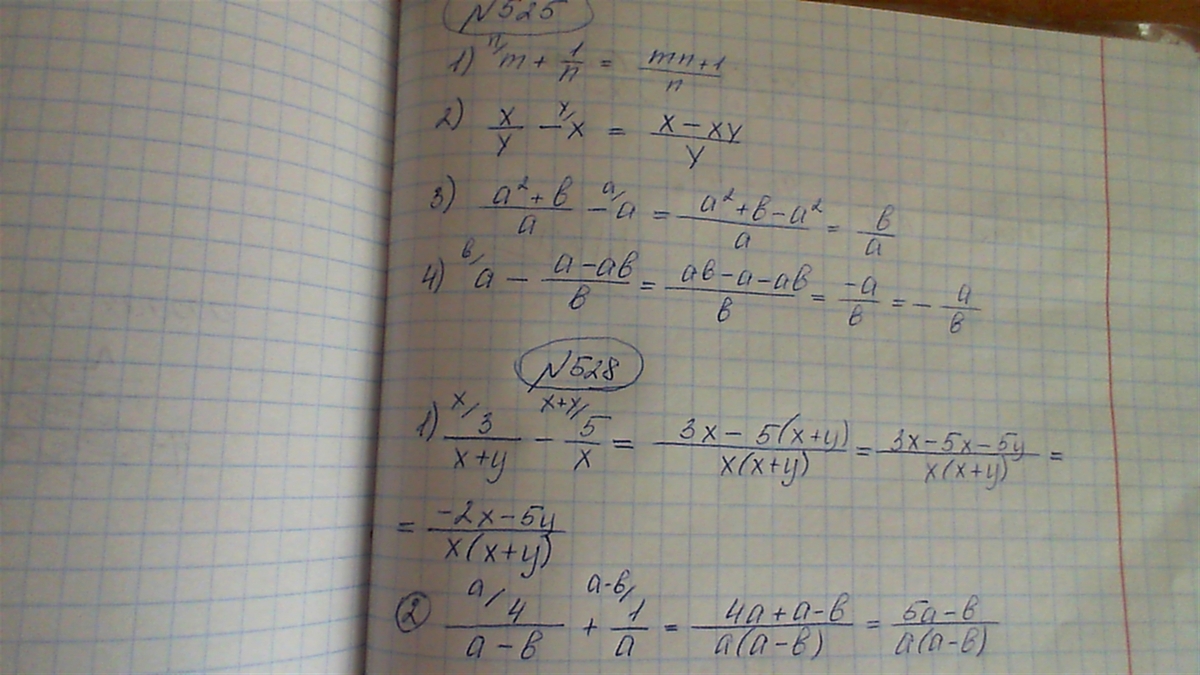 №525
1) ⁿ/m + 1/n = (mn+1)/n
2) x/y − ʸ/x = (x − xy)/y
3) (a² + в)/a − ᵃ/a = (a² + в − a²)/a = в/a
4) ᵇ/a − (a − aв)/в = (aв − a − aв)/в = −a/в = − a/в
№528
1) ˣ/ 3/(x+y) − ˣ⁺ʸ/ 5/x = (3x − 5(x+y))/(x(x+y)) = (3x − 5x − 5y)/(x(x+y)) =
= (−2x − 5y)/(x(x+y))
② ᵃ/ 4/(a − в) + ᵃ⁻ᵇ/ 1/a = (4a + a − в)/(a(a − в)) = (5a − в)/(a(a − в))